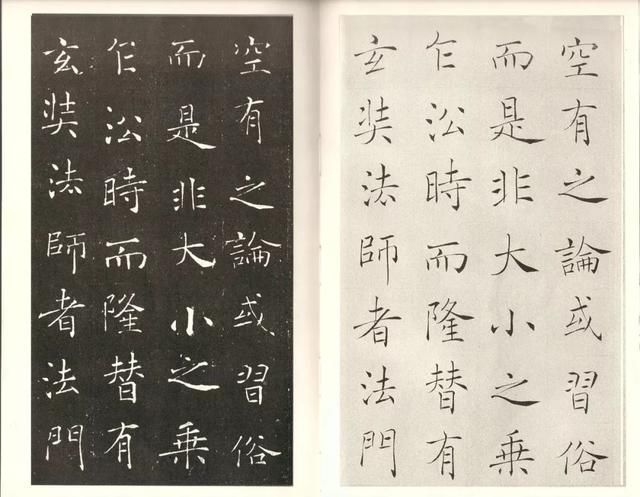 空有之論或習俗
而是非大小之乘
乍㳂時而隆替有
玄奘法師者法門
空有之論或習俗
而是非大小之乘
乍㳂時而隆替有
玄奘法師者法門